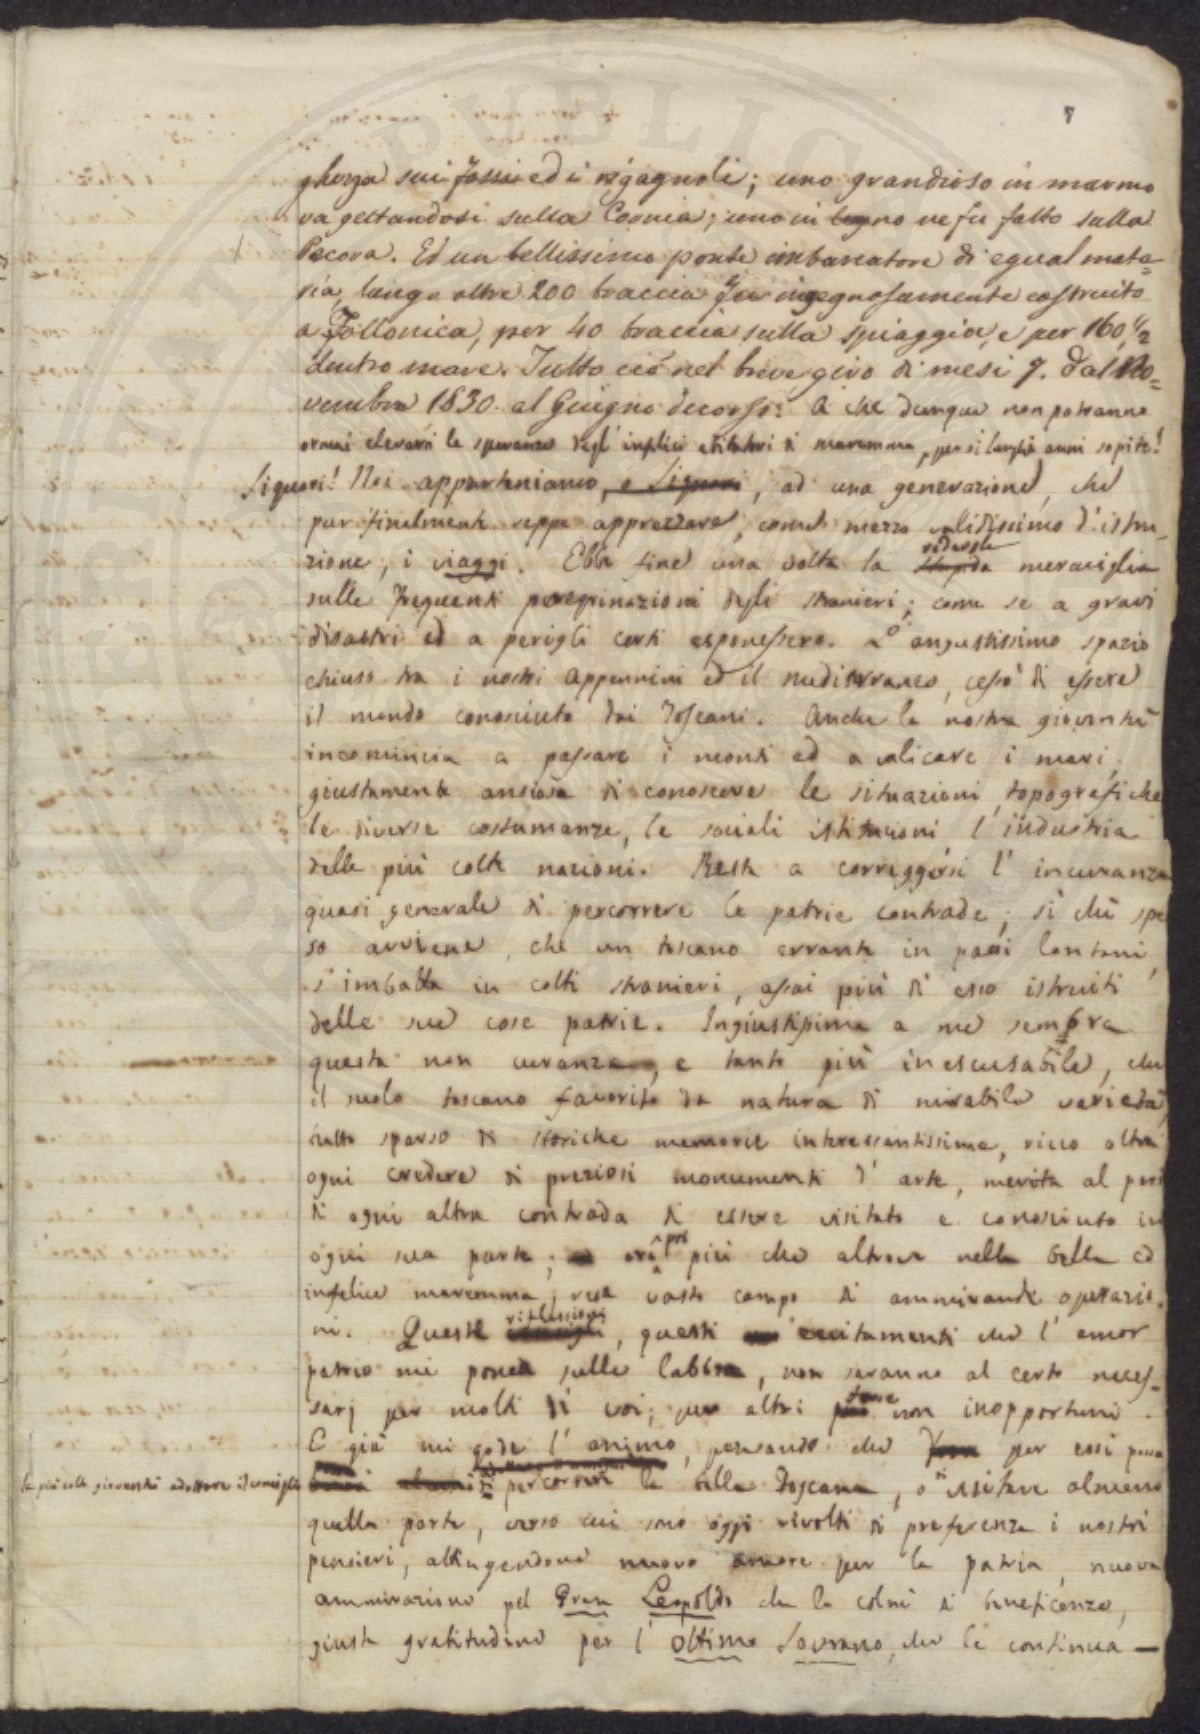 7
ghezza sui fossi ed i rigagnoli; uno grandioso in marmo
va gettandosi sulla Cornia; uno in legno ne fu fatto sulla
Pecora. Ed un bellissimo ponte imbarcatore di egual mate=
ria, lungo oltre 200 braccia fu ingegnosamente costruito
a Follonica, per 40 braccia sulla spiaggia, e per 160 1/2
dentro mare. Tutto ciò nel breve giro di mesi 7. dal No=
vembre 1830. al Giugno decorso: A che dunque non potranno
ormai elevarsi le speranze degl' infelici abitatori di maremma, per sì lunghi anni sopite!
Signori! Noi apparteniamo, o Signori, ad una generazione, che
pur finalmente seppe apprezzare, come mezzo validissimo d'istru-
zione, i viaggi. Ebbe fine una volta la stupida meraviglia
sulle frequenti peregrinazioni degli stranieri; come se a gravi
disastri ed a perigli certi esponessero. L' angustissimo spazio
chiuso tra i nostri Appennini ed il mediterraneo, cessò di essere
il mondo conosciuto dai Toscani. Anche la nostra gioventù
incomincia a passare i monti ed a valicare i mari,
giustamente ansiosa di conoscere le situazioni topografiche
le diverse costumanze, le sociali istituzioni, l' industria
delle più colte nazioni. Resta a correggersi l' incuranza
quasi generale di percorrere le patrie contrade; sì che spe
so avviene, che un toscano errante in paesi lontani,
s'imbatta in colti stranieri, assai più di esso istruiti
delle sue cose patrie. Ingiustissima a me sembra
questa non curanza, e tanto più inescusabile, che
il suolo toscano favorito da natura di mirabile varietà,
tutto sparso di storiche memorie interessantissime, ricco oltre
ogni credere di preziosi monumenti d' arte, merita al pari
di ogni altra contrada di essere visitato e conosciuto in
ogni sua parte; ora poi più che altrove nella bella ed
infelice maremma, resa vasto campo di ammirande operazio-
riflessioni
ni. Queste, questi eccitamenti che l' amor
patrio mi pone sulle labbra, non saranno al certo neces-
forse
sarj per molti di voi; per altri non inopportuni.
E già mi gode l' animo, pensando che per essi possa
la più colta gioventù adottare il consiglio
di percorrere la bella Toscana, o di visitare almeno
quella parte, verso cui sono oggi rivolti di preferenza i nostri
pensieri, attingendone nuovo amore per la patria, nuova
ammirazione pel Gran Leopoldo che la colmò di beneficenze,
giusta gratitudine per l' Ottimo Sovrano, che le continua —